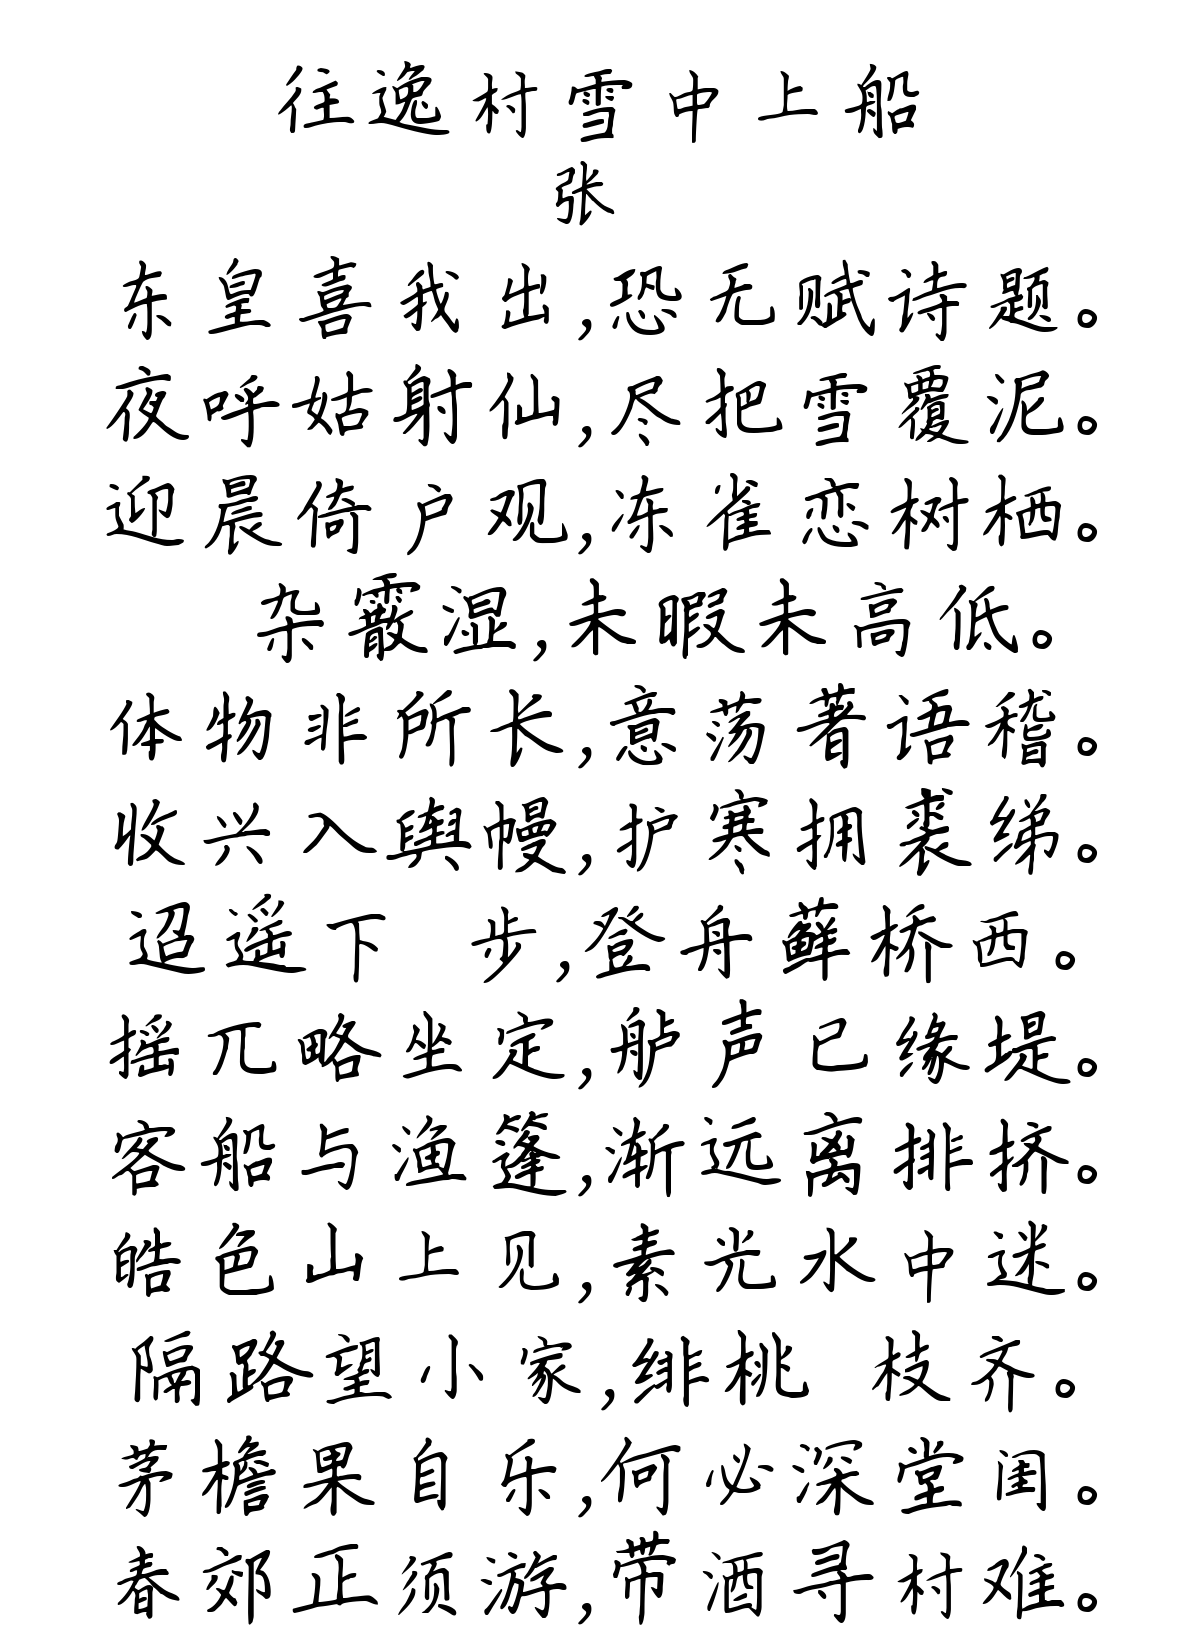 往逸村雪中上船
张
东皇喜我出,恐无赋诗题。
夜呼姑射仙,尽把雪覆泥。
迎晨倚户观,冻雀恋树栖。
杂霰湿,未暇未高低。
体物非所长,意荡著语稽。
收兴入舆幔,护寒拥裘绨。
迢遥下 步,登舟藓桥西。
摇兀略坐定,舻声已缘堤。
客船与渔篷,渐远离排挤。
皓色山上见,素光水中迷。
隔路望小家,绯桃 枝齐。
茅檐果自乐,何必深堂闺。
春郊正须游,带酒寻村难。